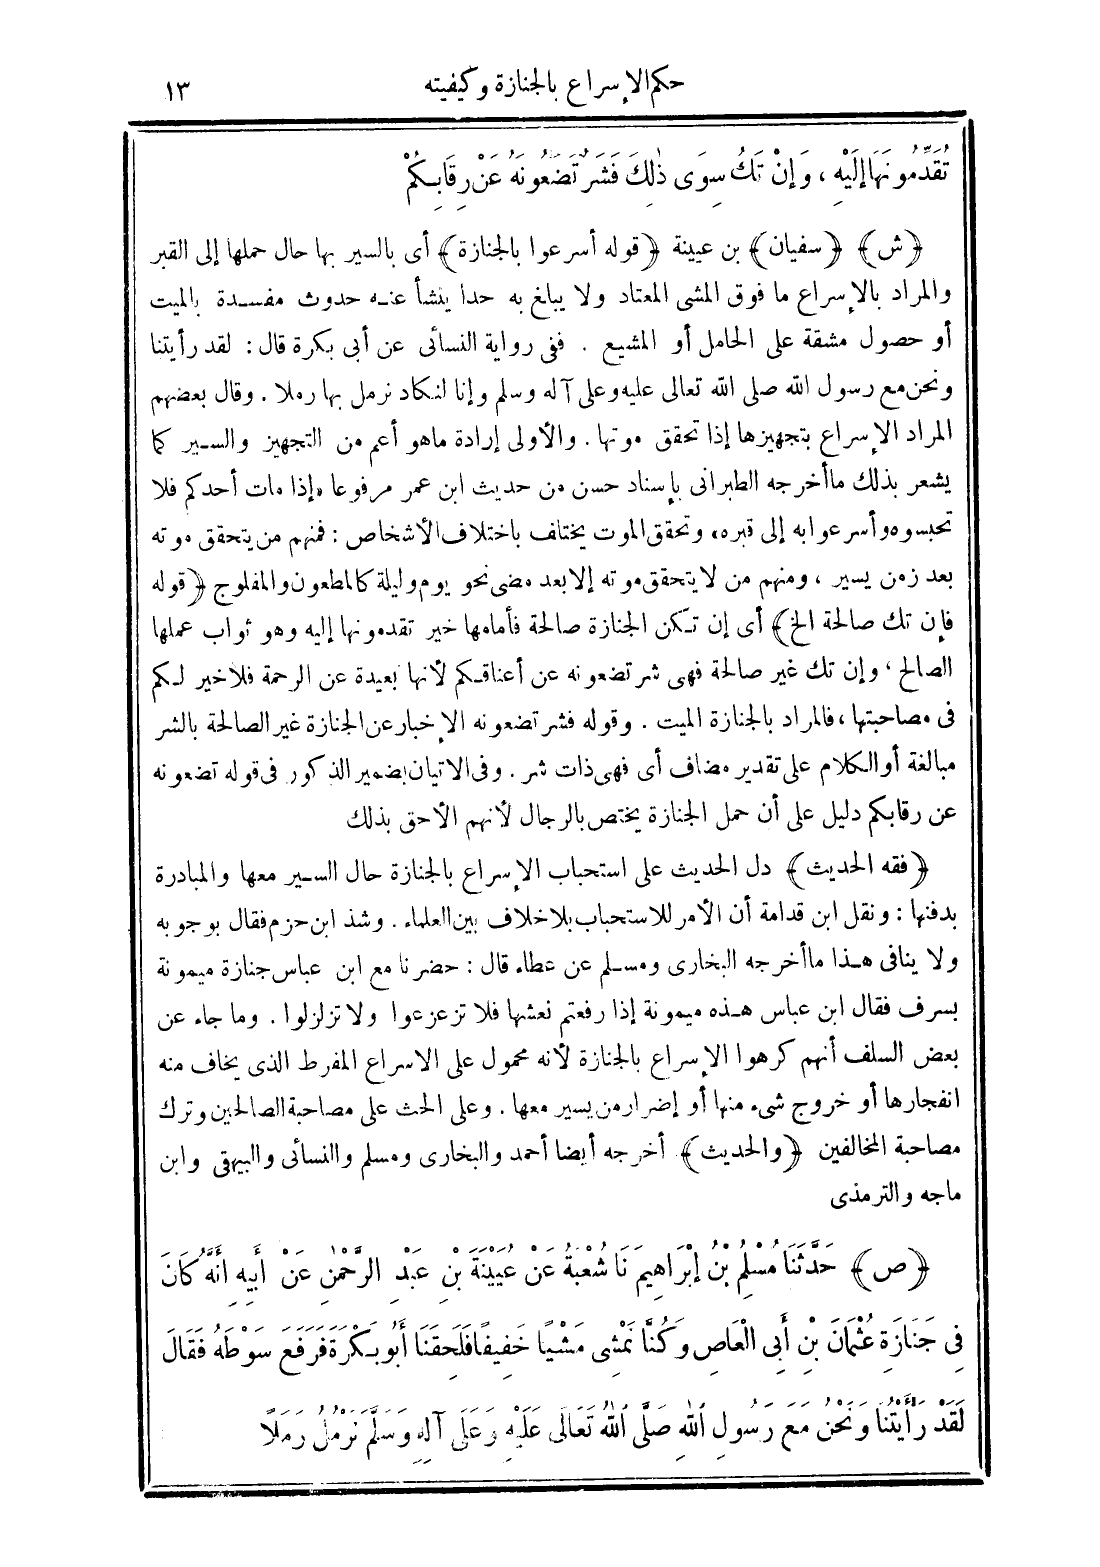 حكم الإسراع بالجنازة وكيفيته ١٣
تُقَدِّمُونَهَا إِلَيْهِ ، وَإِنْ تَكُ سِوَى ذَٰلِكَ فَشَرٌّ تَضَعُونَهُ عَنْ رِقَابِكُمْ
﴿ش﴾ ﴿سفيان﴾ بن عيينة ﴿قوله أسرعوا بالجنازة﴾ أى بالسير بها حال حملها إلى القبر
والمراد بالإسراع ما فوق المشى المعتاد ولا يبلغ به حدا ينشأ عنه حدوث مفسدة بالميت
أو حصول مشقة على الحامل أو المشيع . ففى رواية النسائى عن أبى بكرة قال : لقد رأيتنا
ونحن مع رسول الله صلى الله تعالى عليه وعلى آله وسلم وإنا لنكاد نرمل بها رملا . وقال بعضهم
المراد الإسراع بتجهيزها إذا تحقق موتها . والأولى إرادة ماهو أعم من التجهيز والسير كما
يشعر بذلك ماأخرجه الطبرانى بإسناد حسن من حديث ابن عمر مرفوعا «إذا مات أحدكم فلا
تحبسوه وأسرعوا به إلى قبره» وتحقق الموت يختلف باختلاف الأشخاص : فمنهم من يتحقق موته
بعد زمن يسير ، ومنهم من لا يتحقق موته إلا بعد مضى نحو يوم وليلة كالمطعون والمفلوج ﴿قوله
فإن تك صالحة الخ﴾ أى إن تكن الجنازة صالحة فأمامها خير تقدمونها إليه وهو ثواب عملها
الصالح ، وإن تك غير صالحة فهى شر تضعونه عن أعناقكم لأنها بعيدة عن الرحمة فلا خير لكم
فى مصاحبتها ، فالمراد بالجنازة الميت . وقوله فشر تضعونه الإخبار عن الجنازة غير الصالحة بالشر
مبالغة أو الكلام على تقدير مضاف أى فهى ذات شر . وفى الاتيان بضمير الذكور فى قوله تضعونه
عن رقابكم دليل على أن حمل الجنازة يختص بالرجال لأنهم الأحق بذلك
﴿فقه الحديث﴾ دل الحديث على استحباب الإسراع بالجنازة حال السير معها والمبادرة
بدفنها : ونقل ابن قدامة أن الأمر للاستحباب بلا خلاف بين العلماء . وشذ ابن حزم فقال بوجوبه
ولا ينافى هذا ماأخرجه البخارى ومسلم عن عطاء قال : حضرنا مع ابن عباس جنازة ميمونة
بسرف فقال ابن عباس هذه ميمونة إذا رفعتم نعشها فلا تزعزعوا ولا تزلزلوا . وما جاء عن
بعض السلف أنهم كرهوا الإسراع بالجنازة لأنه محمول على الاسراع المفرط الذى يخاف منه
انفجارها أو خروج شىء منها أو إضرار من يسير معها . وعلى الحث على مصاحبة الصالحين وترك
مصاحبة المخالفين ﴿والحديث﴾ أخرجه أيضا أحمد والبخارى ومسلم والنسائى والبيهقى وابن
ماجه والترمذى
﴿ص﴾ حَدَّثَنَا مُسْلِمُ بْنُ إِبْرَاهِيمَ نَا شُعْبَةُ عَنْ عُيَيْنَةَ بْنِ عَبْدِ الرَّحْمٰنِ عَنْ أَبِيهِ أَنَّهُ كَانَ
فِى جَنَازَةِ عُثْمَانَ بْنِ أَبِى الْعَاصِ وَكُنَّا نَمْشِى مَشْيًا خَفِيفًا فَلَحِقَنَا أَبُو بَكْرَةَ فَرَفَعَ سَوْطَهُ فَقَالَ
لَقَدْ رَأَيْتُنَا وَنَحْنُ مَعَ رَسُولِ اللهِ صَلَّى اللهُ تَعَالَى عَلَيْهِ وَعَلَى آلِهِ وَسَلَّمَ نَرْمُلُ رَمَلًا